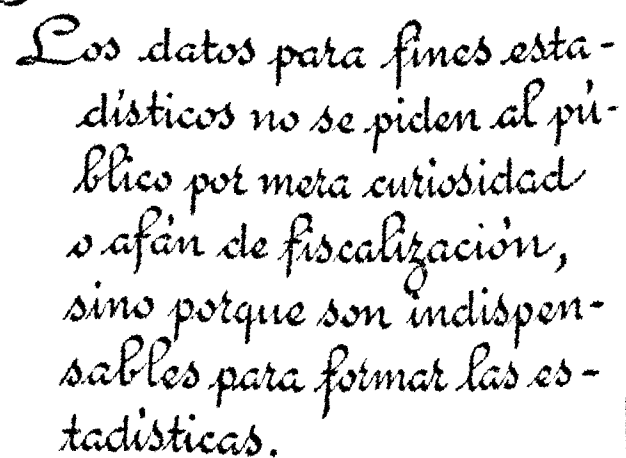 Los datos para fines esta-
dísticos no se piden al pú-
blico por mera curiosidad
o afán de fiscalización,
sino porque son indispen-
sables para formar las es-
tadísticas.